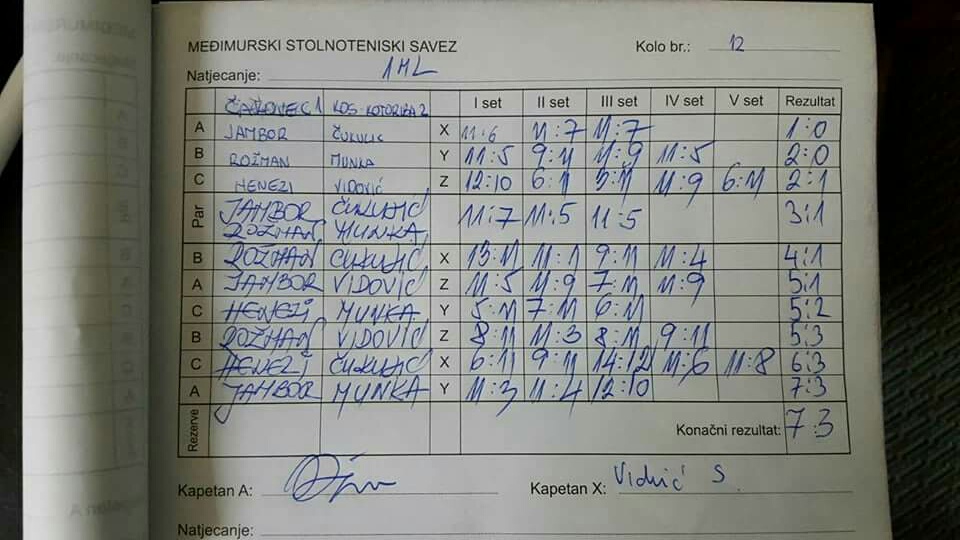 MEĐIMURSKI STOLNOTENISKI SAVEZ Kolo br.: 12
Natjecanje: 1ML
ČAKOVEC 1 KOS-KOTORIBA 2 I set II set III set IV set V set Rezultat
A JAMBOR ČUKULIĆ X 11:6 11:7 11:7 1:0
B ROŽMAN MUNKA Y 11:5 9:11 11:9 11:5 2:0
C HENEZI VIDOVIĆ Z 12:10 6:11 5:11 11:9 6:11 2:1
Par JAMBOR ČUKULIĆ 11:7 11:5 11:5 3:1
ROŽMAN MUNKA
B ROŽMAN ČUKULIĆ X 13:11 11:1 9:11 11:4 4:1
A JAMBOR VIDOVIĆ Z 11:5 11:9 7:11 11:9 5:1
C HENEZI MUNKA Y 5:11 7:11 6:11 5:2
B ROŽMAN VIDOVIĆ Z 8:11 11:3 8:11 9:11 5:3
C HENEZI ČUKULIĆ X 6:11 9:11 14:12 11:6 11:8 6:3
A JAMBOR MUNKA Y 11:3 11:4 12:10 7:3
Rezerve Konačni rezultat: 7:3
Kapetan A: Kapetan X: S.
Natjecanje: